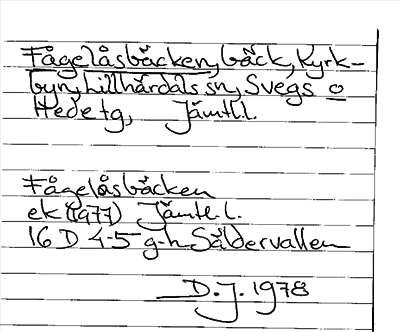 Fågelåsbäcken, bäck, Kyrk-
byn, Lillhärdals sn, Svegs o
Hede tg, Jämtl.l.
Fågelåsbäcken
ek (1977) Jämtl.l.
16 D 4-5 g-h Säldervallen
D.J. 1978